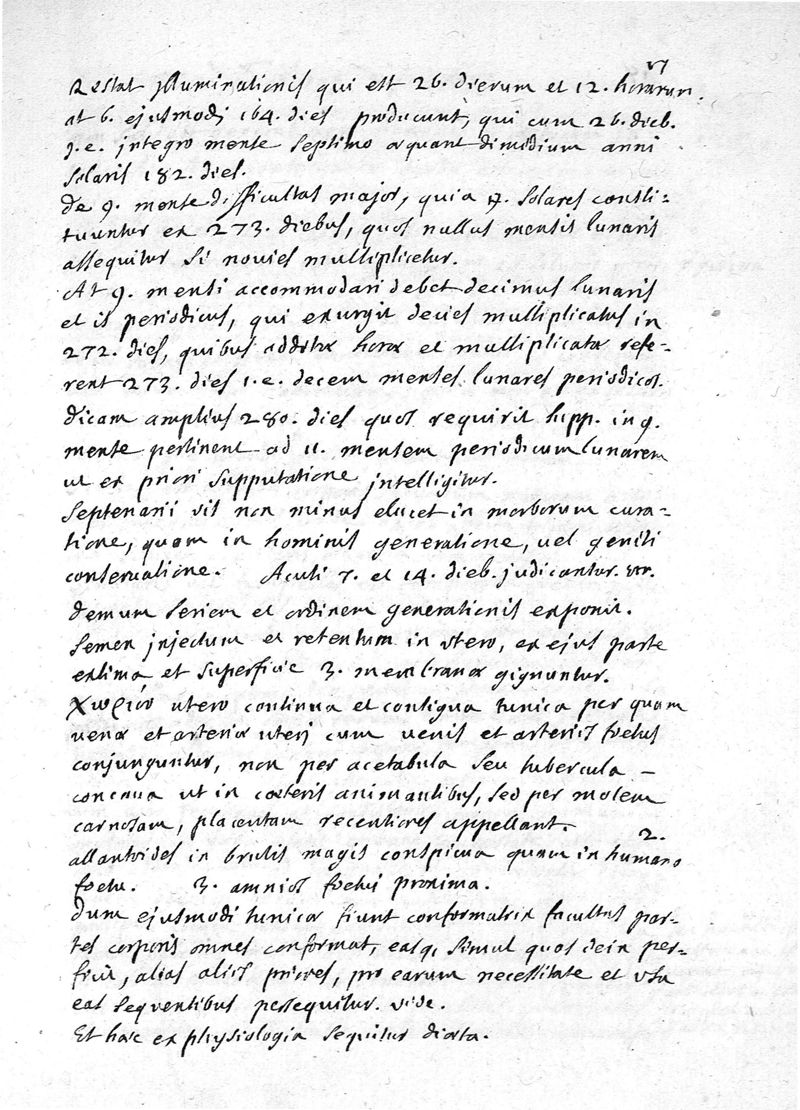 vj
Restat jlluminationis qui est 26. dierum et 12. horarum.
at 6. ejusmodj 164. dies producunt, qui cum 26. dieb.
j.e. jntegro mense septimo æquant dimidium anni
solaris 182. dies.
De 9. mense difficultas major, quia 9. solares consti-
tuuntur ex 273. diebus, quos nullus mensis lunaris
assequitur si novies multiplicetur.
At 9. mensi accommodari debet decimus lunaris
et is periodicus, qui exurgit decies multiplicatus in
272. dies, quibus additæ horæ et multiplicatæ refe-
rent 273. dies 1.e. decem menses lunares periodicos.
dicam amplius 280. dies quos requirit hipp. in 9.
mense pertinent ad 11. mensem periodicum lunarem
ut ex priori supputatione jntelligitur.
Septenarii vis non minus elucet in morborum cura-
tione, quam in hominis generatione, vel geniti
conservatione. Acuti 7. et 14. dieb. judicantur.
demum seriem et ordinem generationis exponit.
Semen jnjectum et retentum in vtero, ex ejus parte
extima et superficie 3. membranæ gignuntur.
Χωριόν utero continua et contigua tunica per quam
venæ et arteriæ uterj cum venis et arteriis foetus
conjunguntur, non per acetabula seu tubercula –
concava ut in cæteris animantibus, sed per molem
carnosam, placentam recentiores appellant. 2.
allantoides in brutis magis conspicua quam in humano
foetu. 3. amnios foetui proxima.
Dum ejusmodi tunicæ fiunt conformatrix facultas par-
tes corporis omnes conformat, easq. simul quos dein per-
ficit, alias aliis priores, pro earum necessitate et vsu
eas sequentibus persequitur. vide.
Et hæc ex physiologia sequitur diæta.